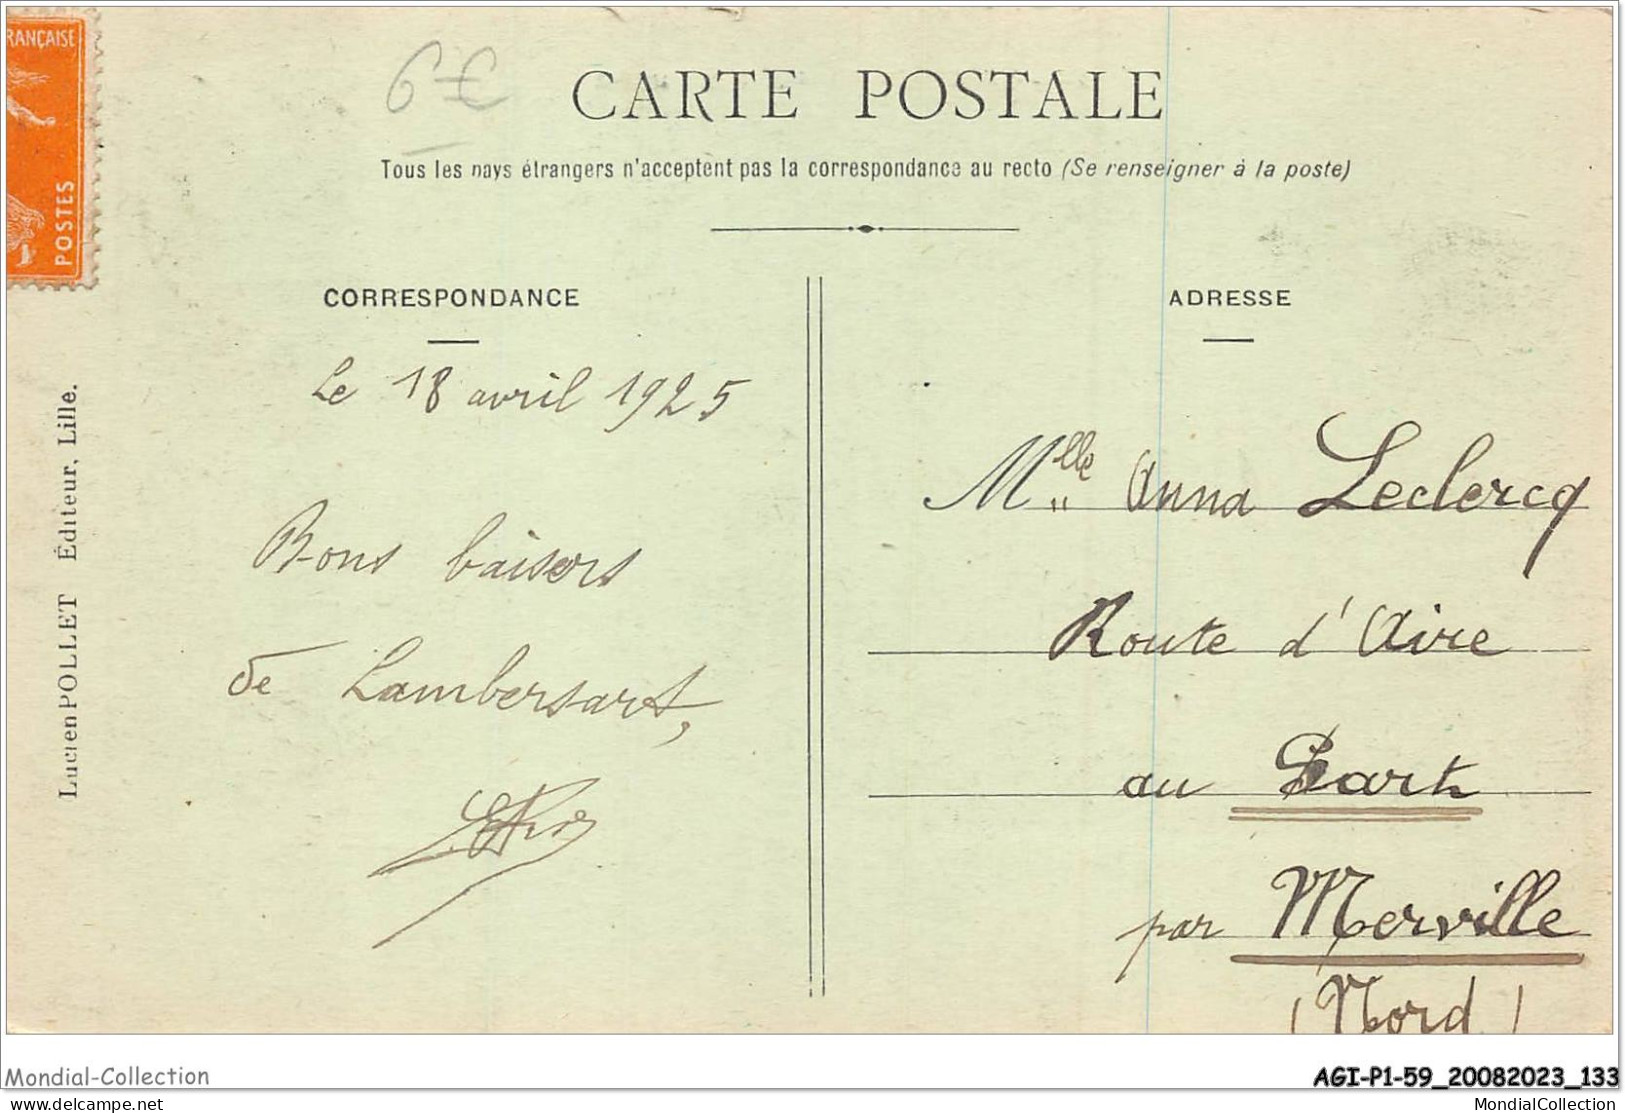 RANÇAISE
POSTES
6€
CARTE POSTALE
Tous les pays étrangers n'acceptent pas la correspondance au recto (Se renseigner à la poste)
CORRESPONDANCE
Le 18 avril 1925
Bons baisers
de Lambersart,
Lucien POLLET Éditeur, Lille.
ADRESSE
Mlle Anna Leclercq
Route d'Aire
au Sart
par Merville
(Nord)
Mondial-Collection
AGI-P1-59_20082023_133
www.delcampe.net
MondialCollection